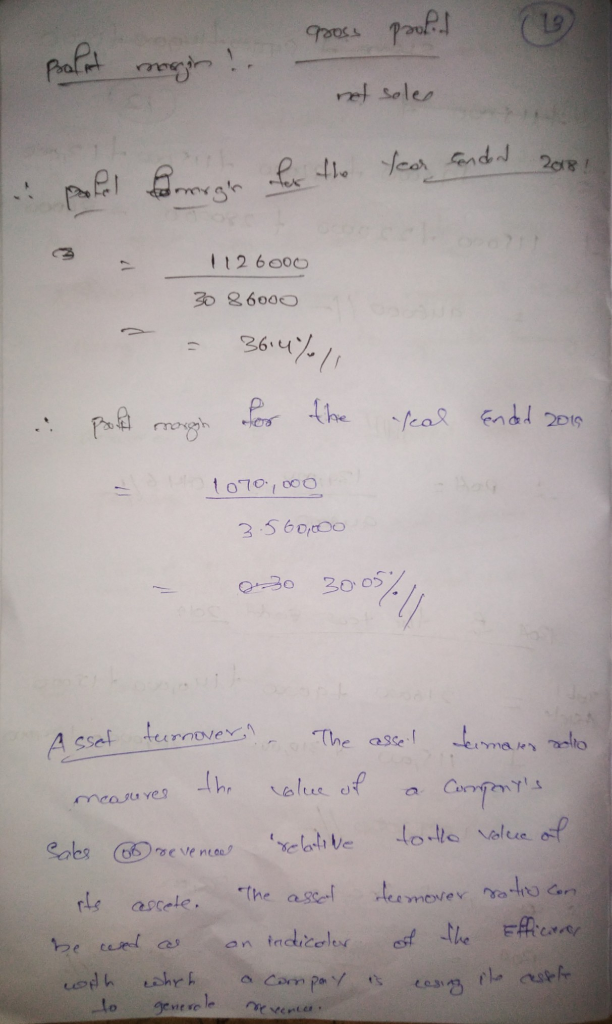 13
gross profit
Profit margin :-
net sales
∴ profit margin for the year ended 2018 :
= 1126000
3086000
= 36.4% //
∴ Profit margin for the year Ended 2019
= 1070,000
3560,000
= 30.05% //
Asset turnover :- The asset turnover ratio
measures the value of a company's
Sales (or) revenues relative to the value of
its assets. The asset turnover ratio can
be used as an indicator of the Efficiency
with which a company is using its assets
to generate revenue.